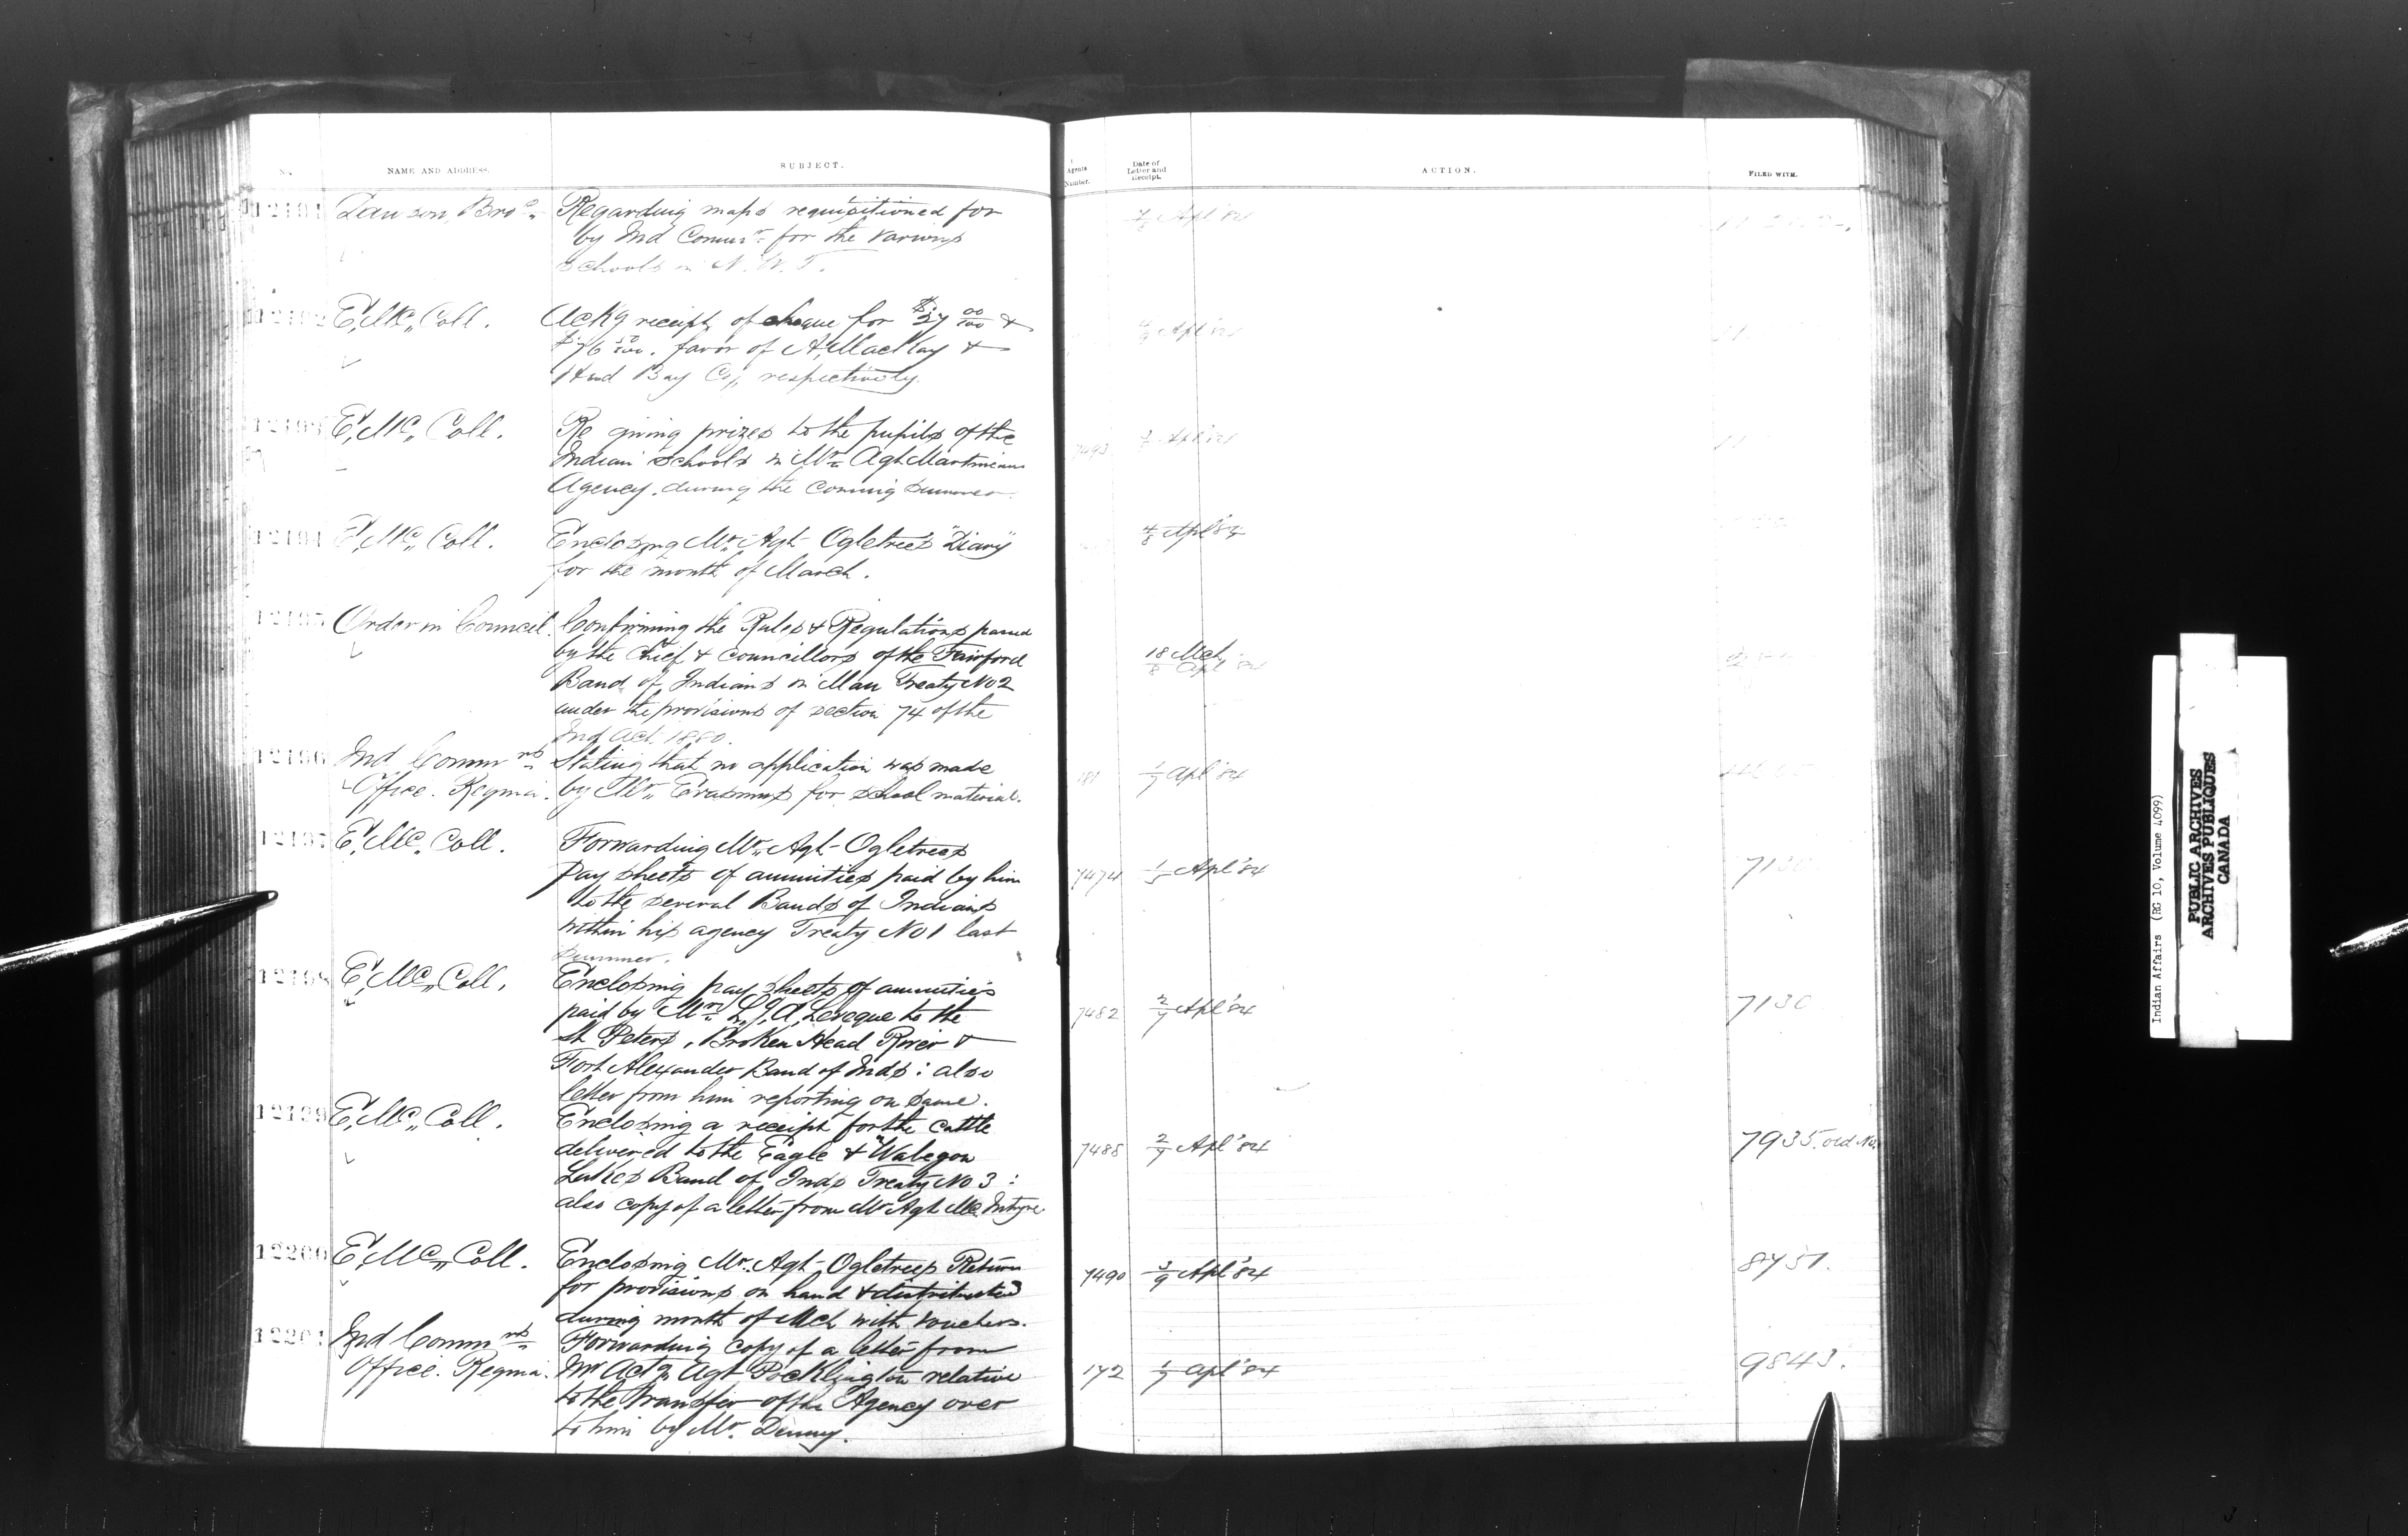 No. NAME AND ADDRESS. SUBJECT. Agents Number. Date of Letter and Receipt. ACTION. FILED WITH.
12191 Dawson Bros. Regarding maps requisitioned for 7/8 Apl '84
by Ind Commr. for the various
schools in N. W. T.
12192 E, Mc, Coll. Ackg receipt of cheque for $27 00/100 & Apl '84
favor of A, MacKay &
Hud Bay Co,, respectively.
12193 E, Mc, Coll. Re giving prizes to the pupils of the 7493 Apl '84
Indian schools in Mr. Agt Martineau
Agency, during the coming summer.
12194 E, Mc, Coll. Enclosing Mr. Agt Ogletrees "Diary" 4/8 Apl '84
for the month of March.
12195 Order in Council. Confirming the Rules & Regulations passed 18 Mch
by the Chief & Councillors of the Fairford 8 Apl '84
Band of Indians in Man Treaty No 2
under the provisions of section 74 of the
Ind Act. 1880.
12196 Ind Commrs Stating that no application was made 181 1/7 Apl '84
Office. Regina. by Mr. Erasmus for school material.
12197 E, Mc, Coll. Forwarding Mr. Agt Ogletrees
Pay sheets of annuities paid by him 7474 1/5 Apl '84 7130
to the several Bands of Indians
within his agency Treaty No 1 last
summer.
12198 E, Mc, Coll. Enclosing pay sheets of annuities
paid by Mr. L, J, A, Leveque to the 7482 2/7 Apl '84 7130
St Peters, Broken Head River &
Fort Alexander Band of Inds: also
letter from him reporting on same.
12199 E, Mc, Coll. Enclosing a receipt for the cattle
delivered to the Eagle & Wabegon 7488 2/7 Apl '84 7935. old No.
Lakes Band of Inds Treaty No 3:
also copy of a letter from Mr Agt McIntyre
12200 E, Mc, Coll. Enclosing Mr. Agt Ogletrees Return 7490 3/9 Apl '84 8451.
for provisions on hand & distributed
during month of Mch with vouchers.
12201 Ind Commrs Forwarding copy of a letter from
Office. Regina. Mr Actg Agt Pocklington relative 172 1/7 Apl '84 9843.
to the transfer of the Agency over
to him by Mr. Denny.
Indian Affairs (RG 10, Volume 4099)
PUBLIC ARCHIVES
ARCHIVES PUBLIQUES
CANADA